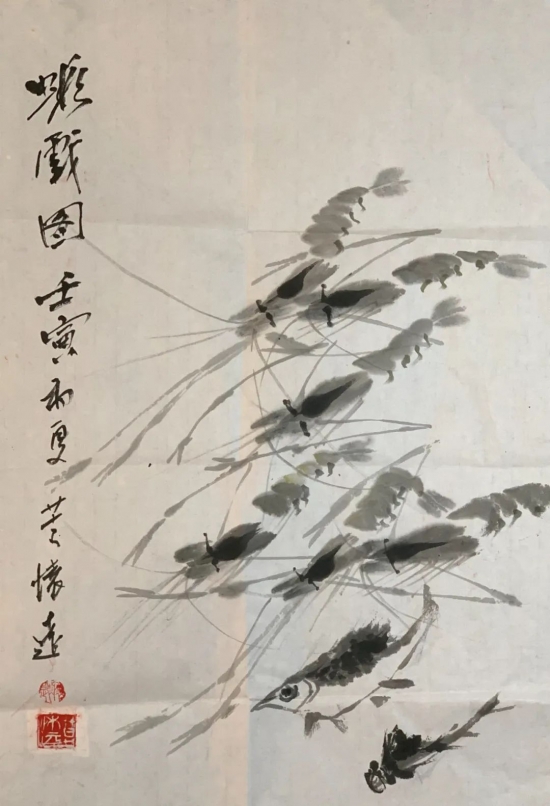 蝦戲图 壬寅初夏 懷遠